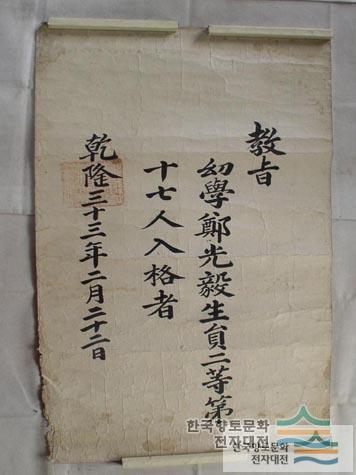 教旨
幼學鄭光毅生員二等第
十七人入格者
乾隆三十三年二月二十二日
한국향토문화
전자대전
한국향토문화
전자대전